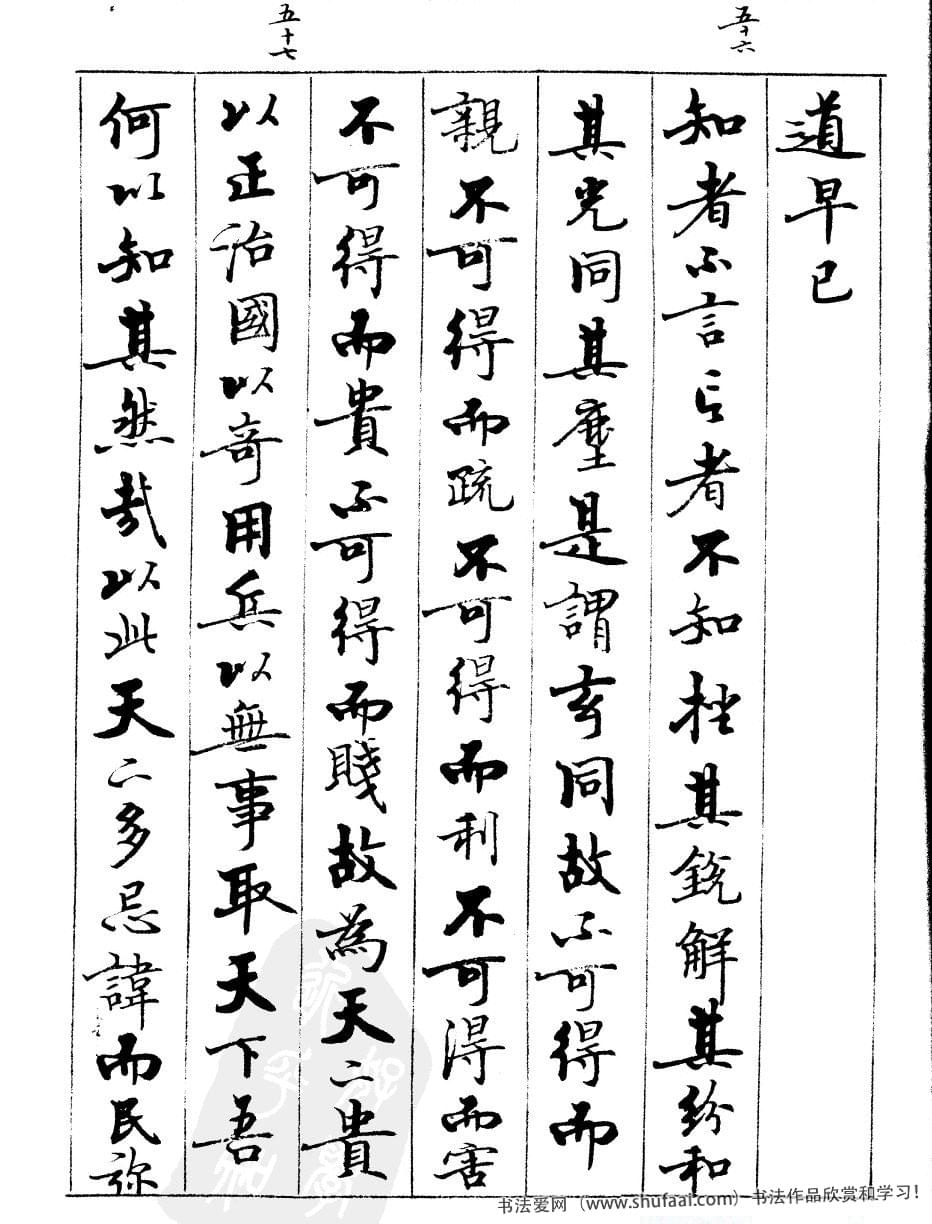 五十六
五十七
道早已
知者不言言者不知挫其銳解其紛和
其光同其塵是謂玄同故不可得而
親不可得而疏不可得而利不可得而害
不可得而貴不可得而賤故為天下貴
以正治國以奇用兵以無事取天下吾
何以知其然哉以此天下多忌諱而民弥
书法爱网（www.shufaai.com）书法作品欣赏和学习!